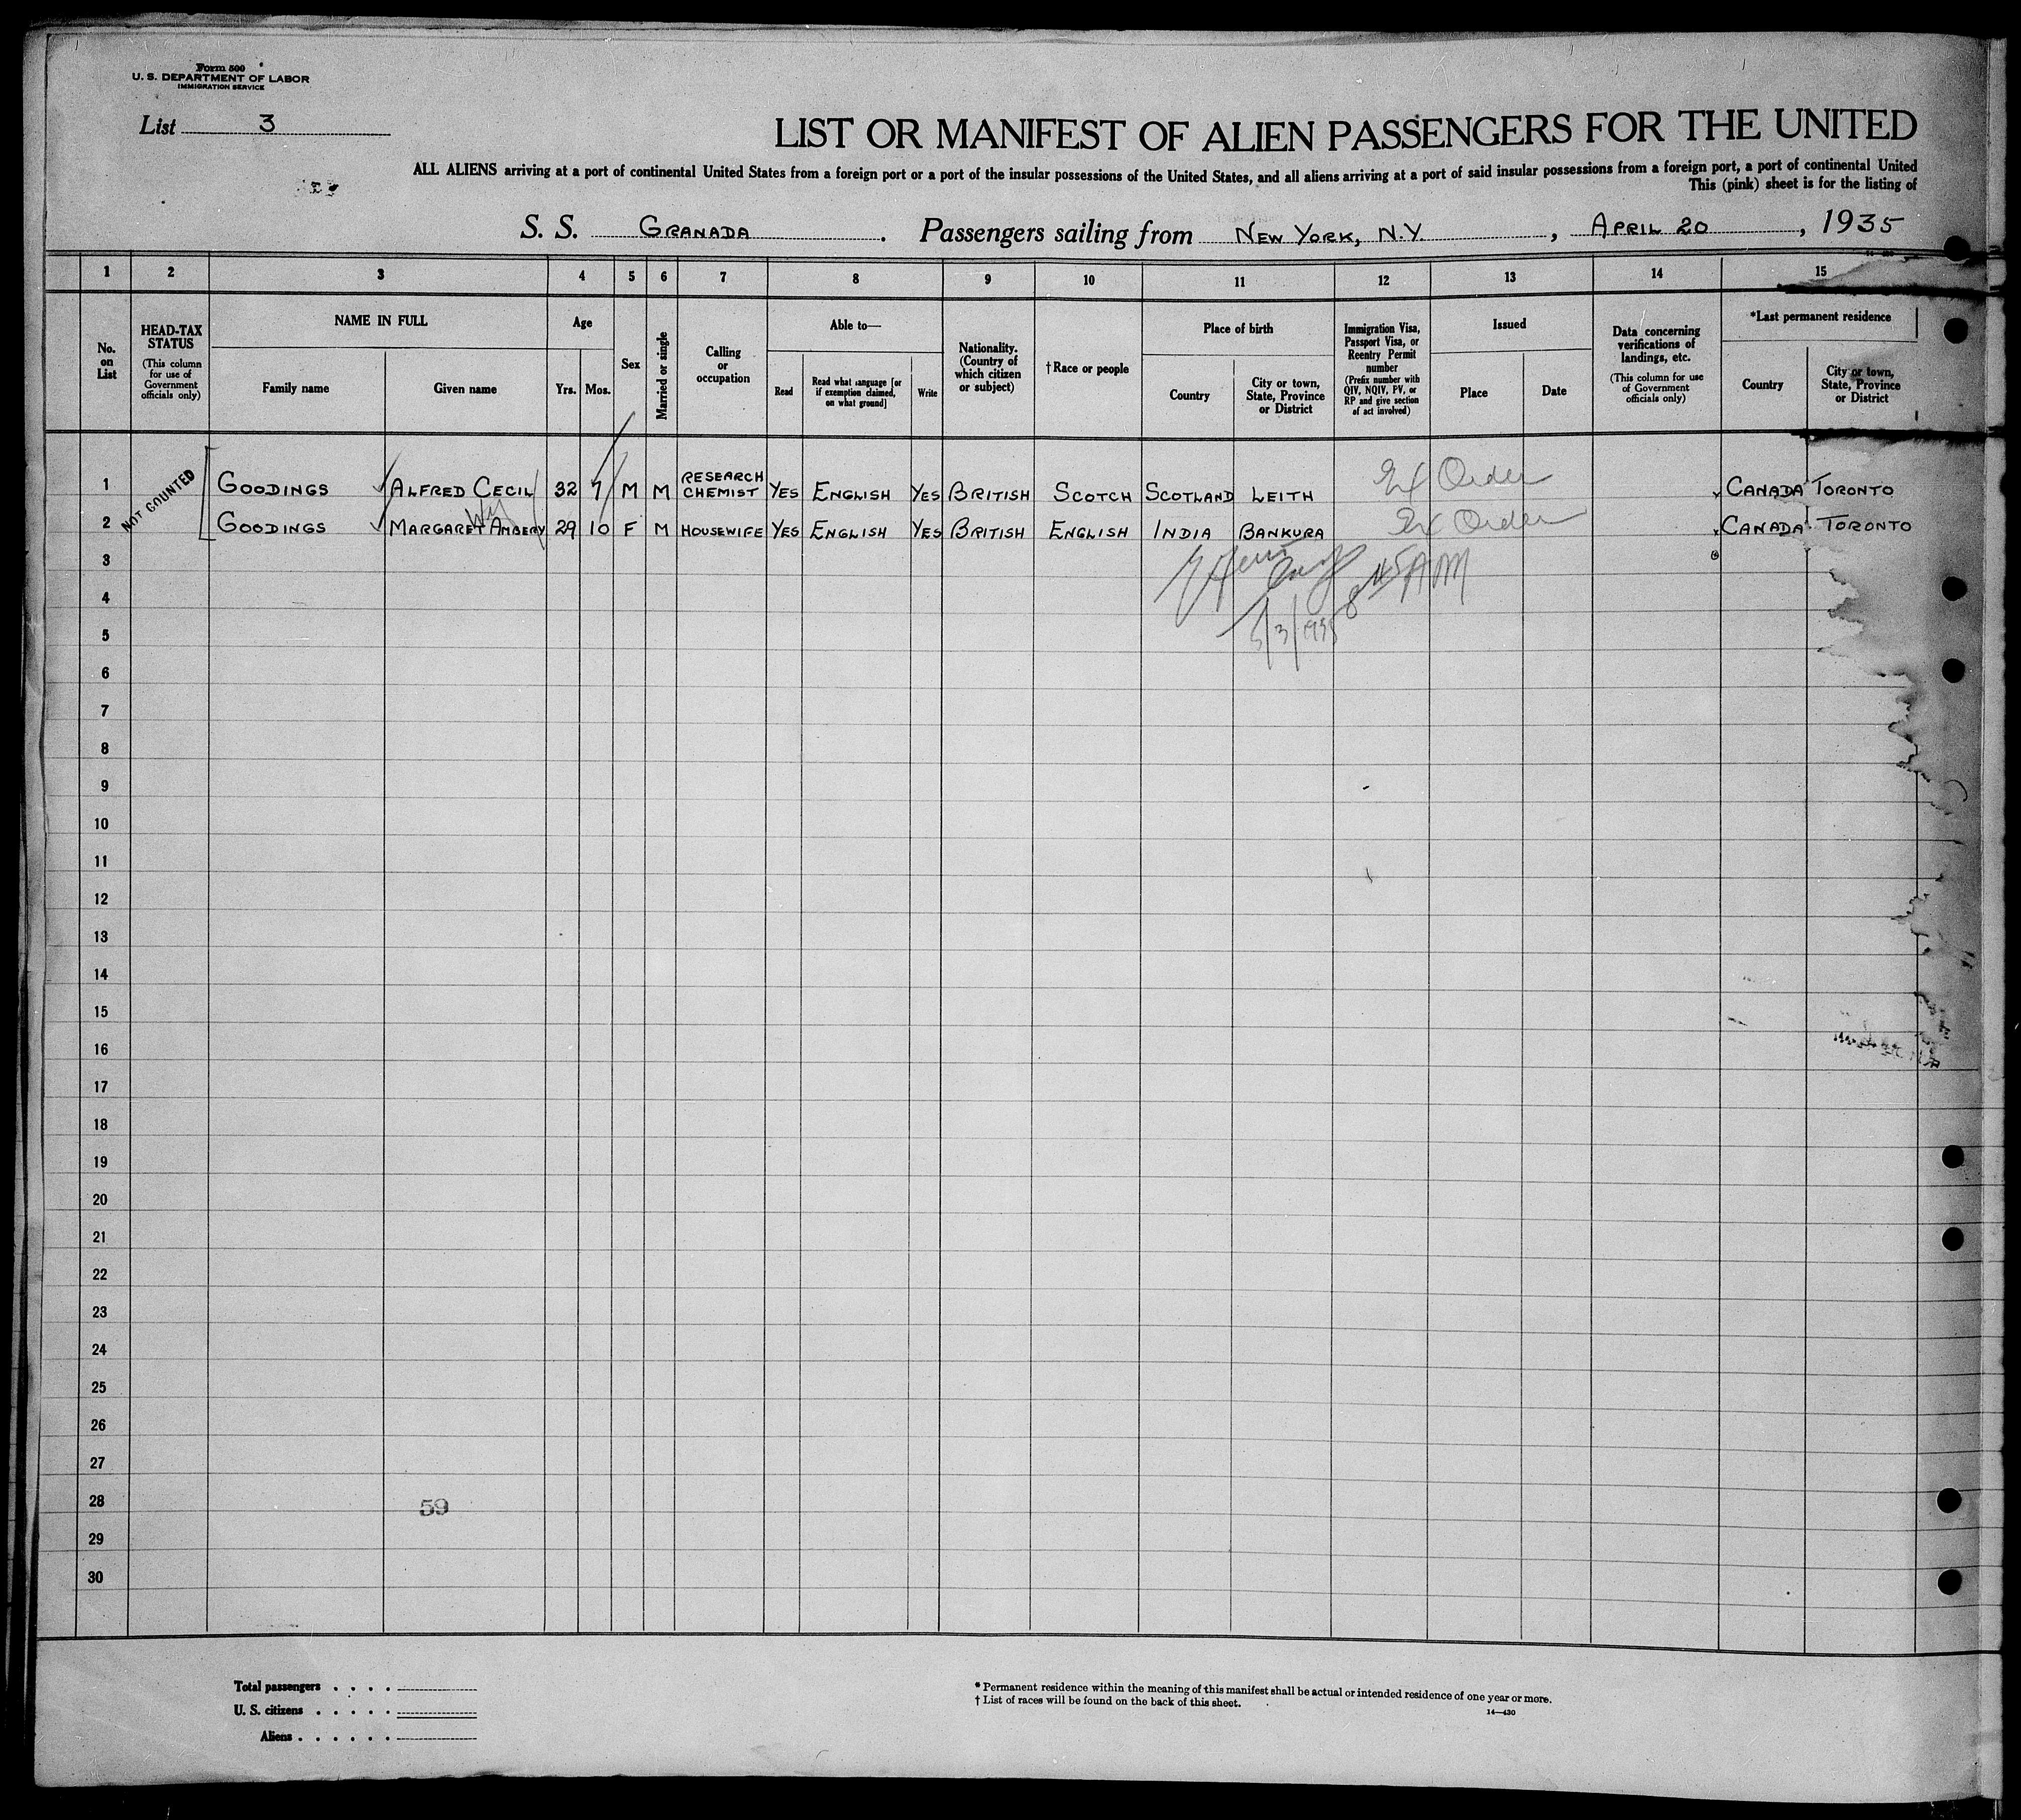 Form 500
U. S. DEPARTMENT OF LABOR
IMMIGRATION SERVICE
List 3
LIST OR MANIFEST OF ALIEN PASSENGERS FOR THE UNITED
ALL ALIENS arriving at a port of continental United States from a foreign port or a port of the insular possessions of the United States, and all aliens arriving at a port of said insular possessions from a foreign port, a port of continental United
This (pink) sheet is for the listing of
S. S. GRANADA. Passengers sailing from NEW YORK, N.Y., APRIL 20, 1935
1 2 3 4 5 6 7 8 9 10 11 12 13 14 15
No. on List
HEAD-TAX STATUS
(This column for use of Government officials only)
NAME IN FULL
Family name
Given name
Age
Yrs.
Mos.
Sex
Married or single
Calling or occupation
Able to—
Read
Read what language [or if exemption claimed, on what ground]
Write
Nationality. (Country of which citizen or subject)
†Race or people
Place of birth
Country
City or town, State, Province or District
Immigration Visa, Passport Visa, or Reentry Permit number
(Prefix number with QIV, NQIV, PV, or RP and give section of act involved)
Issued
Place
Date
Data concerning verifications of landings, etc.
(This column for use of Government officials only)
*Last permanent residence
Country
City or town, State, Province or District
NOT COUNTED
1 GOODINGS ALFRED CECIL 32 7 M M RESEARCH CHEMIST YES ENGLISH YES BRITISH SCOTCH SCOTLAND LEITH Ex Order CANADA TORONTO
2 GOODINGS MARGARET AMBERY 29 10 F M HOUSEWIFE YES ENGLISH YES BRITISH ENGLISH INDIA BANKURA Ex Order CANADA TORONTO
3
8 45 AM
4
5/3/1935
5
6
7
8
9
10
11
12
13
14
15
16
17
18
19
20
21
22
23
24
25
26
27
28
59
29
30
Total passengers . . . .
U. S. citizens . . . . .
Aliens . . . . . .
* Permanent residence within the meaning of this manifest shall be actual or intended residence of one year or more.
† List of races will be found on the back of this sheet.
14—430